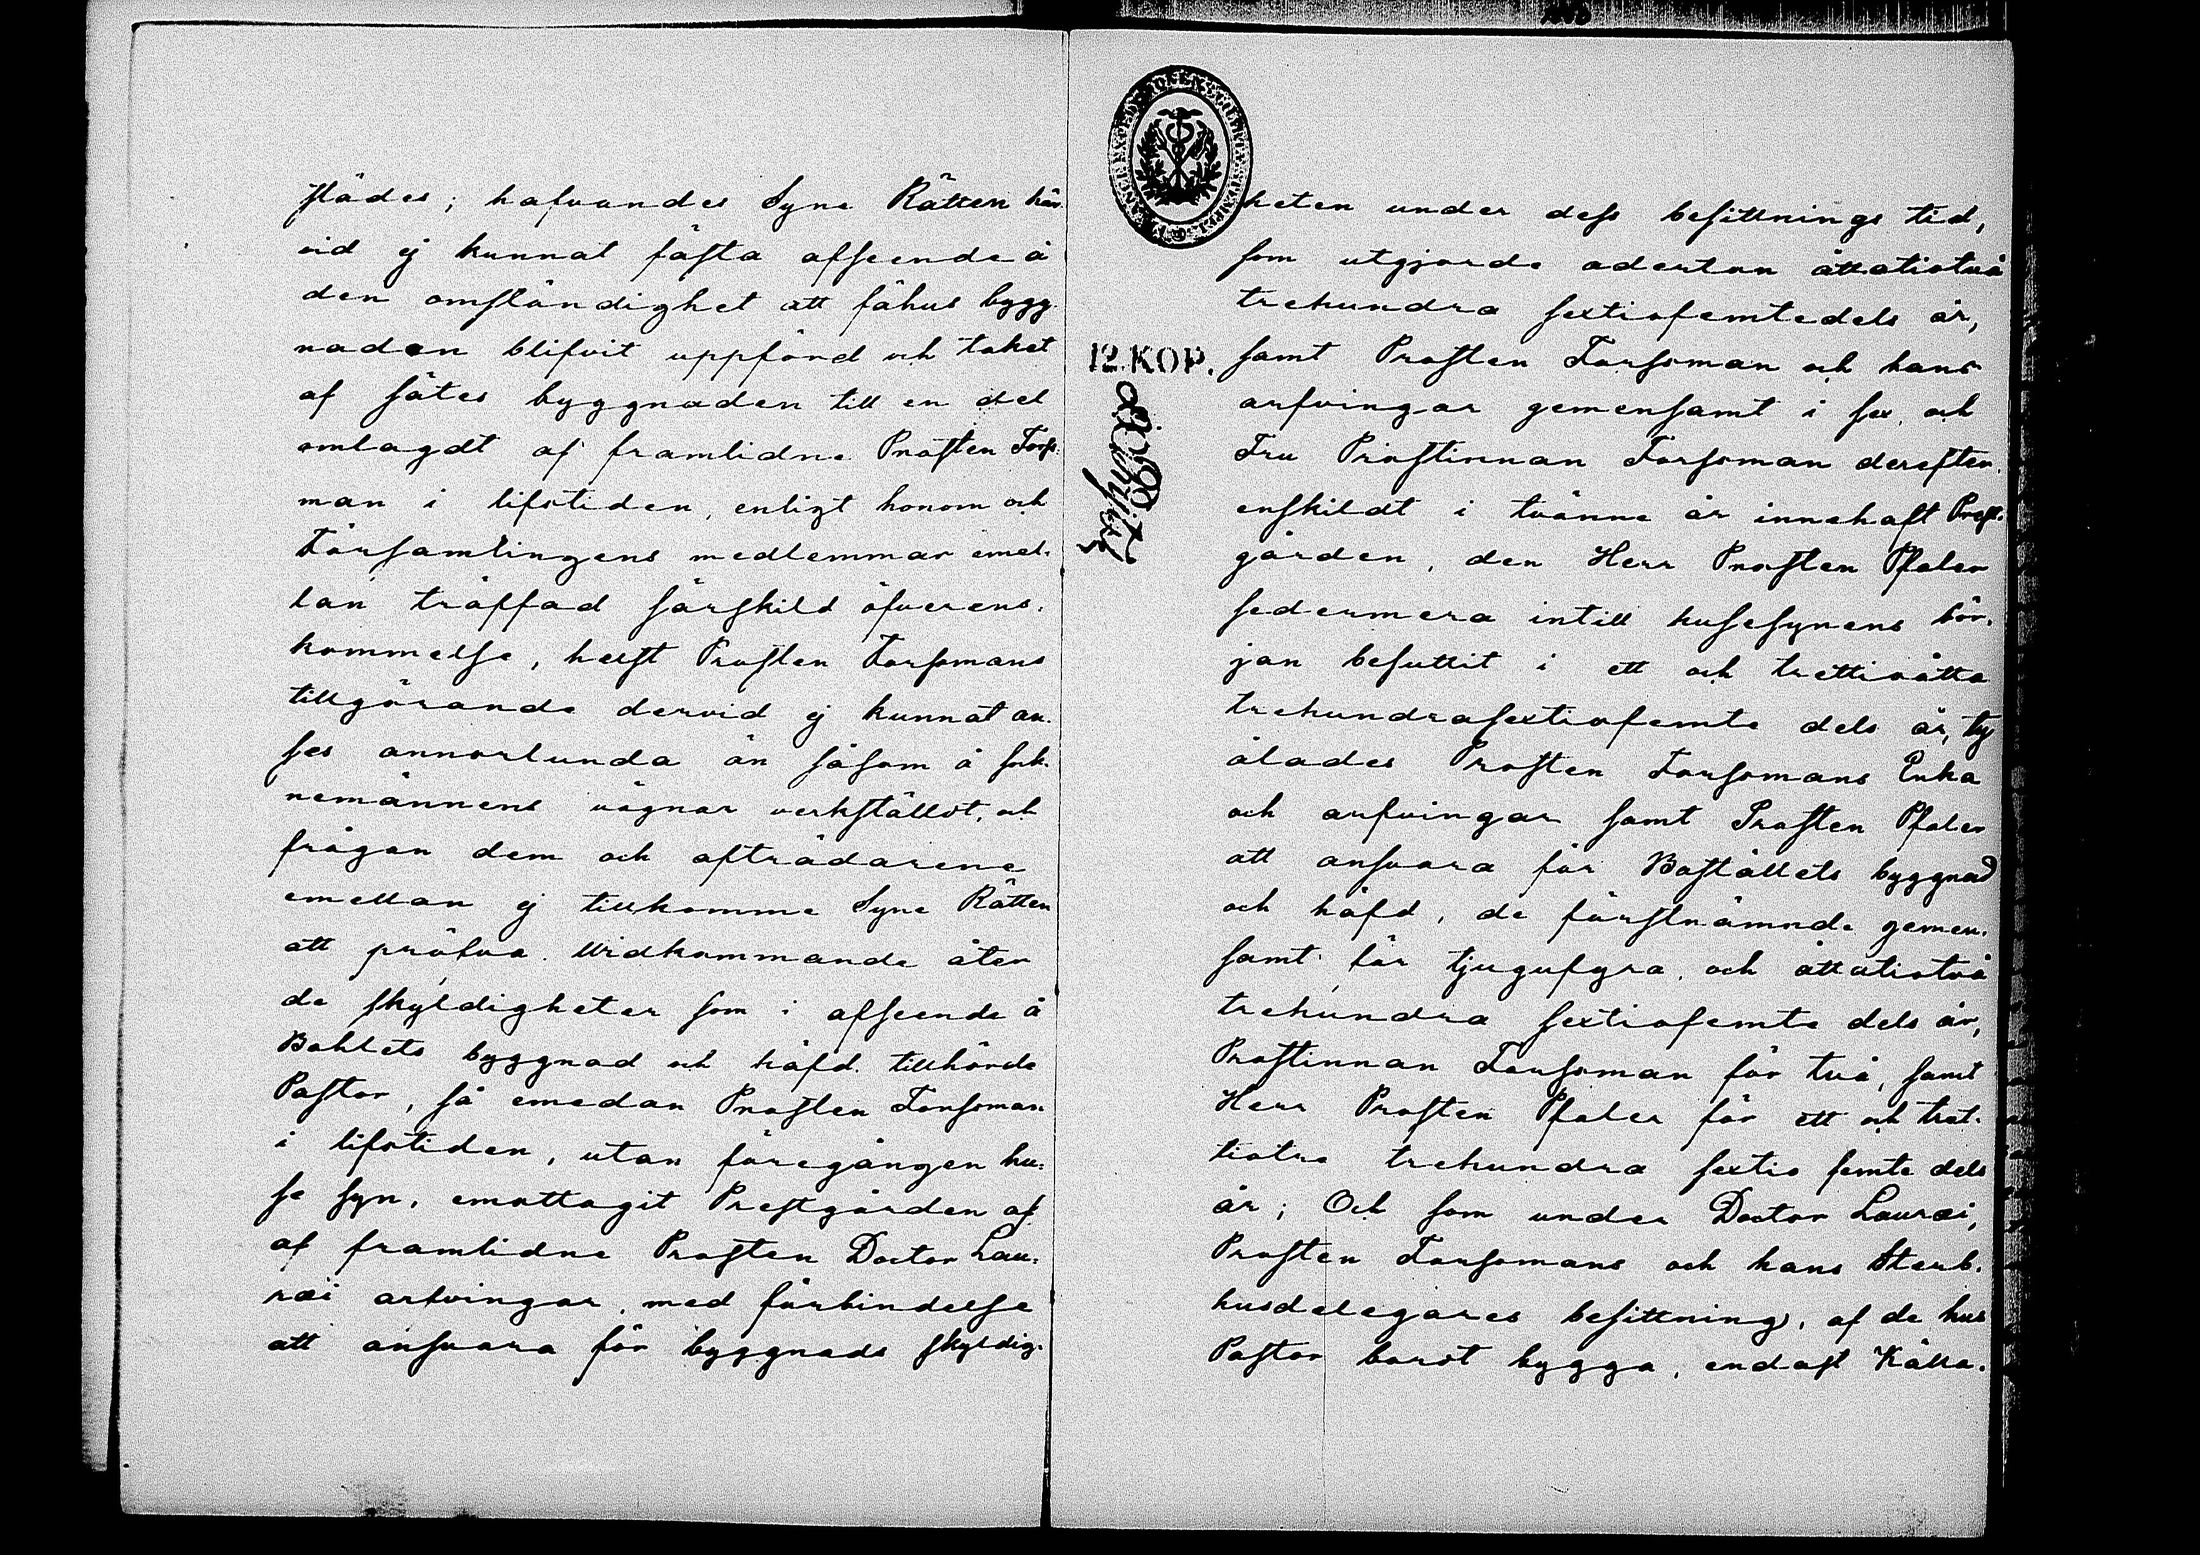 städes; hafvandes Syne Rätten här
vid ej kunnat fästa afseende å
den omständighet att fähus bygg-
naden blifvit uppförd och taket
af sätes byggnaden till en del
omlagdt af framlidne Prosten Forss-
man i lifstiden, enligt honom och
Församlingens medlemmar emel-
lan träffad särskild öfverens-
kommelse, helst Prosten Forssmans
tillgörande dervid ej kunnat an-
ses annorlunda än såsom å sok-
nemännens vägnar verkställdt, och
frågan dem och afträdarene
emellan ej tillkomme Syne Rätten
att pröfva. Widkommande åter
de skyldigheter som i afseende å
Bohlets byggnad och häfd tillhörde
Pastor, så emedan Prosten Forssman
i lifstiden, utan föregången hu-
se syn, emottagit Prestgården af
af framlidne Prosten Doctor Lau-
ræi arfvingar, med förbindelse
att ansvara för byggnads skyldig-
heten under dess besittnings tid,
som utgjorde aderton åttatiotvå
trehundra sextiofemtedels år,
samt Prosten Forssman och hans
12. KOP.
arfvingar gemensamt i sex, och
Fru Prostinnan Forssman derefter
enskildt i tvänne år innehaft Prest-
gården, den Herr Prosten Pfaler
sedermera intill husesynens bör-
jan besuttit i ett och trettioåtta
trehundrasextiofemte dels år, ty
ålades Prosten Forssmans Enka
och arfvingar samt Prosten Pfaler
att ansvara för Boställets byggnad
och häfd, de förstnämnde gemen-
samt för tjugufyra och åttatiotvå
trehundra sextiofemte dels år,
Prostinnan Forssman för två, samt
Herr Prosten Pfaler för ett och tret-
tiotre trehundra sextio femte dels
år; Och som under Doctor Lauræi,
Prosten Forssmans och hans Sterb-
husdelegares besittning, af de hus
Pastor bordt bygga, endast Källa-